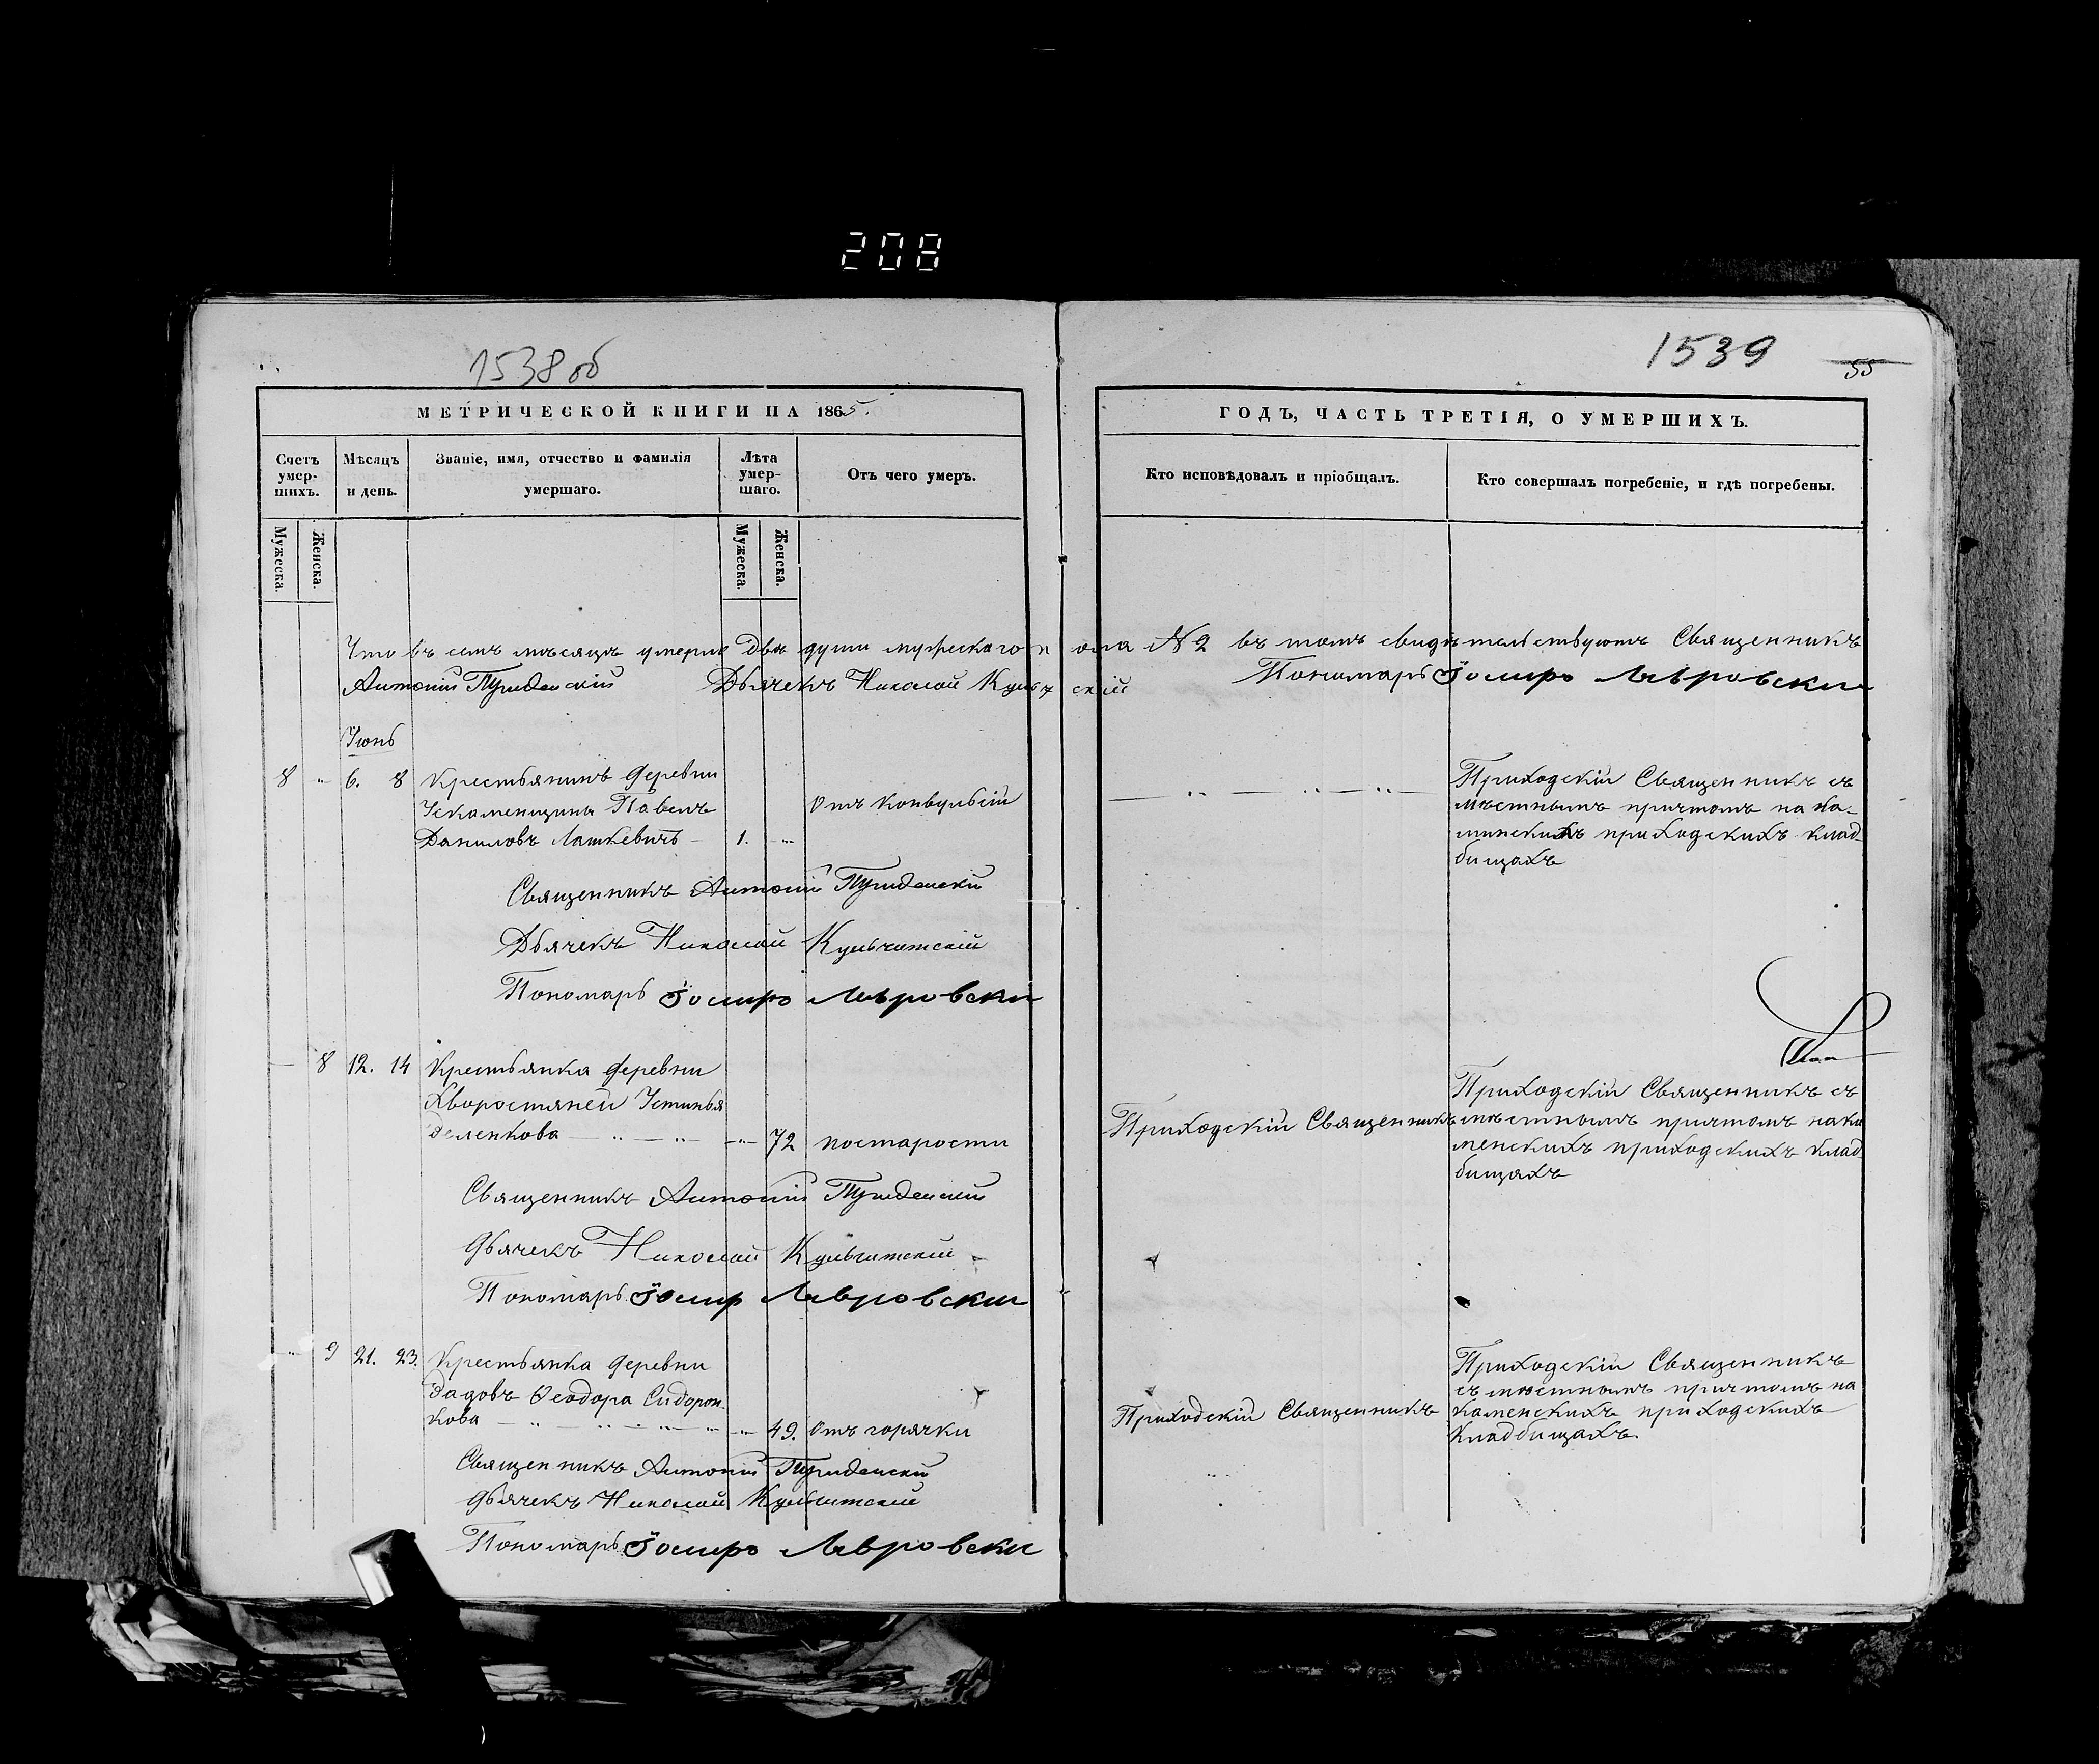 208
1538 об
1539
55
МЕТРИЧЕСКОЙ КНИГИ НА 1865.
ГОДЪ, ЧАСТЬ ТРЕТІЯ, О УМЕРШИХЪ.
Счетъ умер-шихъ.
Мѣсяцъ и день.
Званіе, имя, отчество и фамилія умершаго.
Лѣта умер-шаго.
Отъ чего умеръ.
Кто исповѣдовалъ и пріобщалъ.
Кто совершалъ погребеніе, и гдѣ погребены.
Мужеска.
Женска.
Мужеска.
Женска.
Что въ семъ мѣсяцѣ умерло двѣ души мужескаго пола № 2 въ томъ свидѣтельствуютъ Священникъ
Антоній Дьячекъ Николай Пономарь Іосифъ Лавровски
Іюнь
8 6. 8 Крестьянинъ деревни
Павелъ Отъ конвульсій
Даниловъ Лашкевичъ 1.
Приходскій Священникъ съ
мѣстнымъ причтомъ на ка-
менскихъ приходскихъ клад
бищахъ
Священникъ Антоній
Дьячекъ Николай Кульчитскій
Пономарь Іосифъ Лавровски
8 12. 14 Крестьянка деревни
Хворостяней Устинья
72 постарости
Приходскій Священникъ
Приходскій Священникъ съ
мѣстнымъ причтомъ на ка
менскихъ приходскихъ клад
бищахъ
Священникъ Антоній
Дьячекъ Николай Кульчитскій
Пономарь Іосиф Лавровски
9 21. 23. Крестьянка деревни
Ѳеодора Сидорон
кова 49. Отъ горячки
Приходскій Священникъ
Приходскій Священникъ
съ мѣстнымъ причтомъ на
каменскихъ приходскихъ
кладбищахъ.
Священникъ Антоній
Дьячекъ Николай Кульчитскій
Пономарь Іосифъ Лавровски